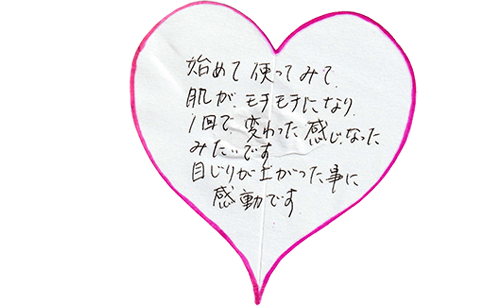 始めて使ってみて、
肌が、モチモチになり、
1回で、変わった感じ、なった
みたいです
目じりが上がった事に
感動です